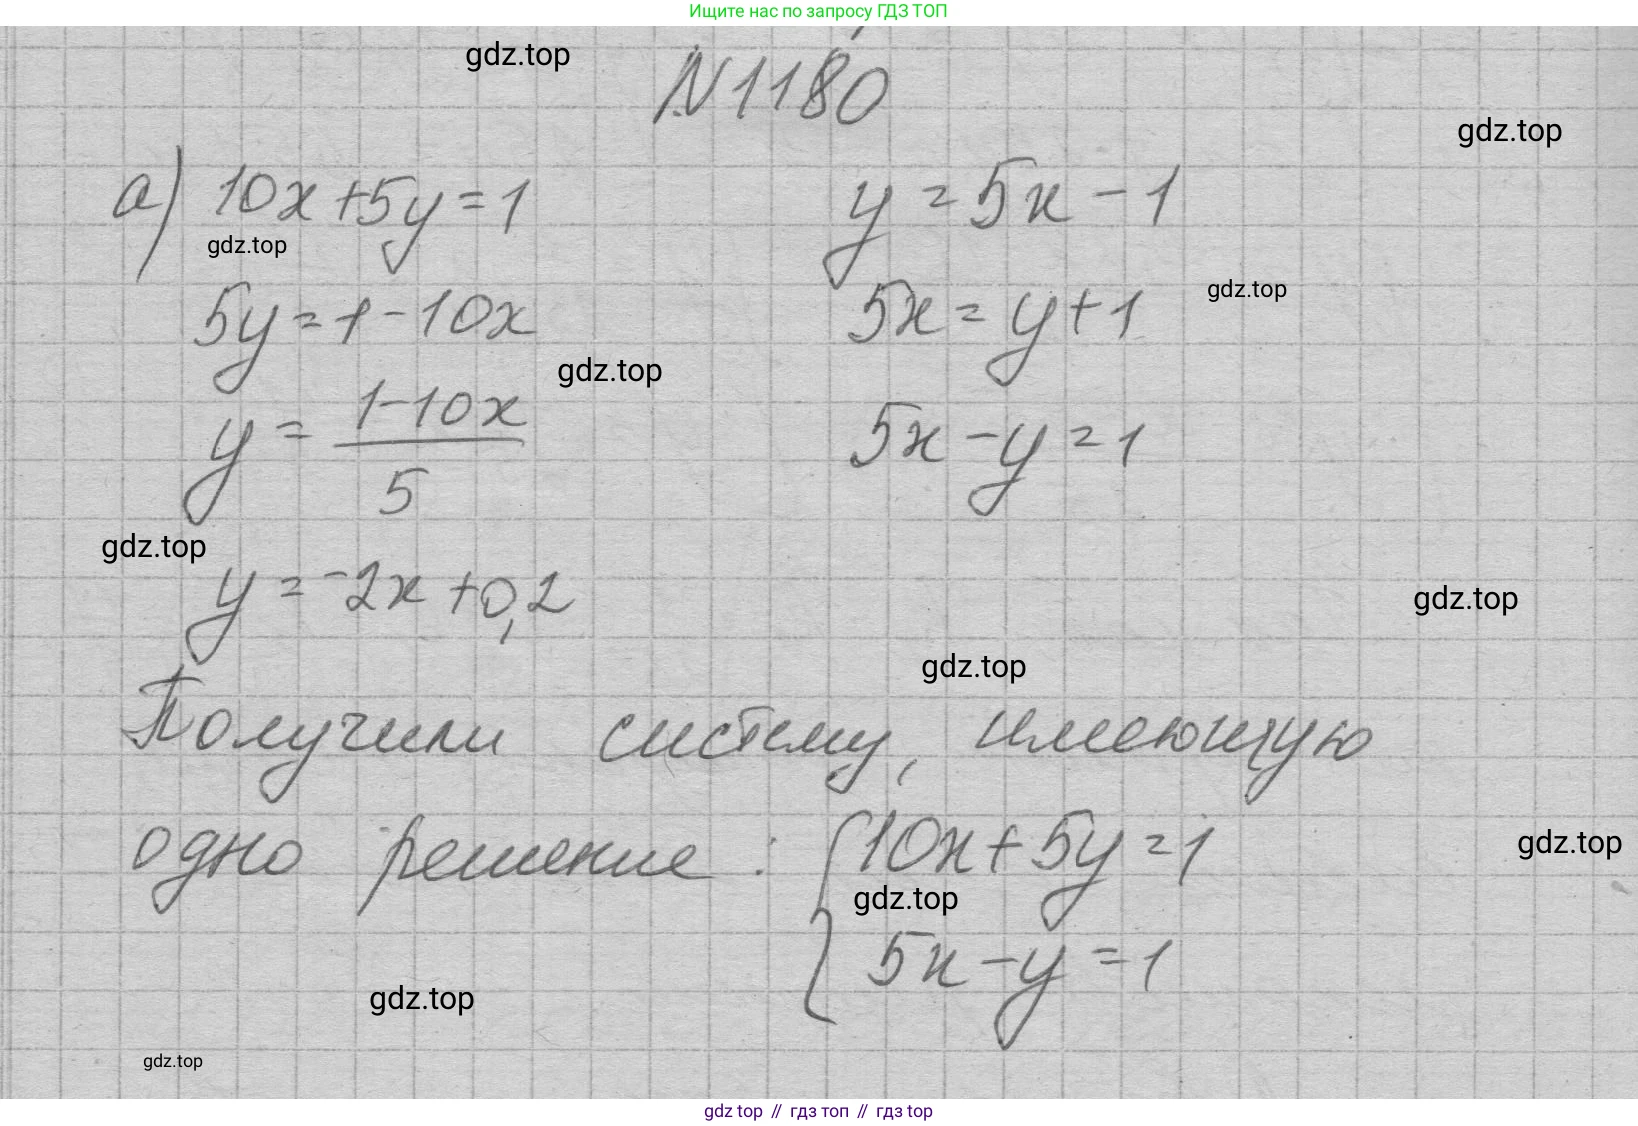 Ищите нас по запросу ГДЗ ТОП
gdz.top
N1180
gdz.top
а) 10x+5y=1
y=5x-1
gdz.top
gdz.top
5y=1-10x
5x=y+1
gdz.top
y=\frac{1-10x}{5}
5x-y=1
gdz.top
y=-2x+0,2
gdz.top
gdz.top
Получили систему, имеющую
одно решение: {10x+5y=1
gdz.top
gdz.top
5x-y=1
gdz.top
gdz.top
gdz top // гдз топ // гдз top